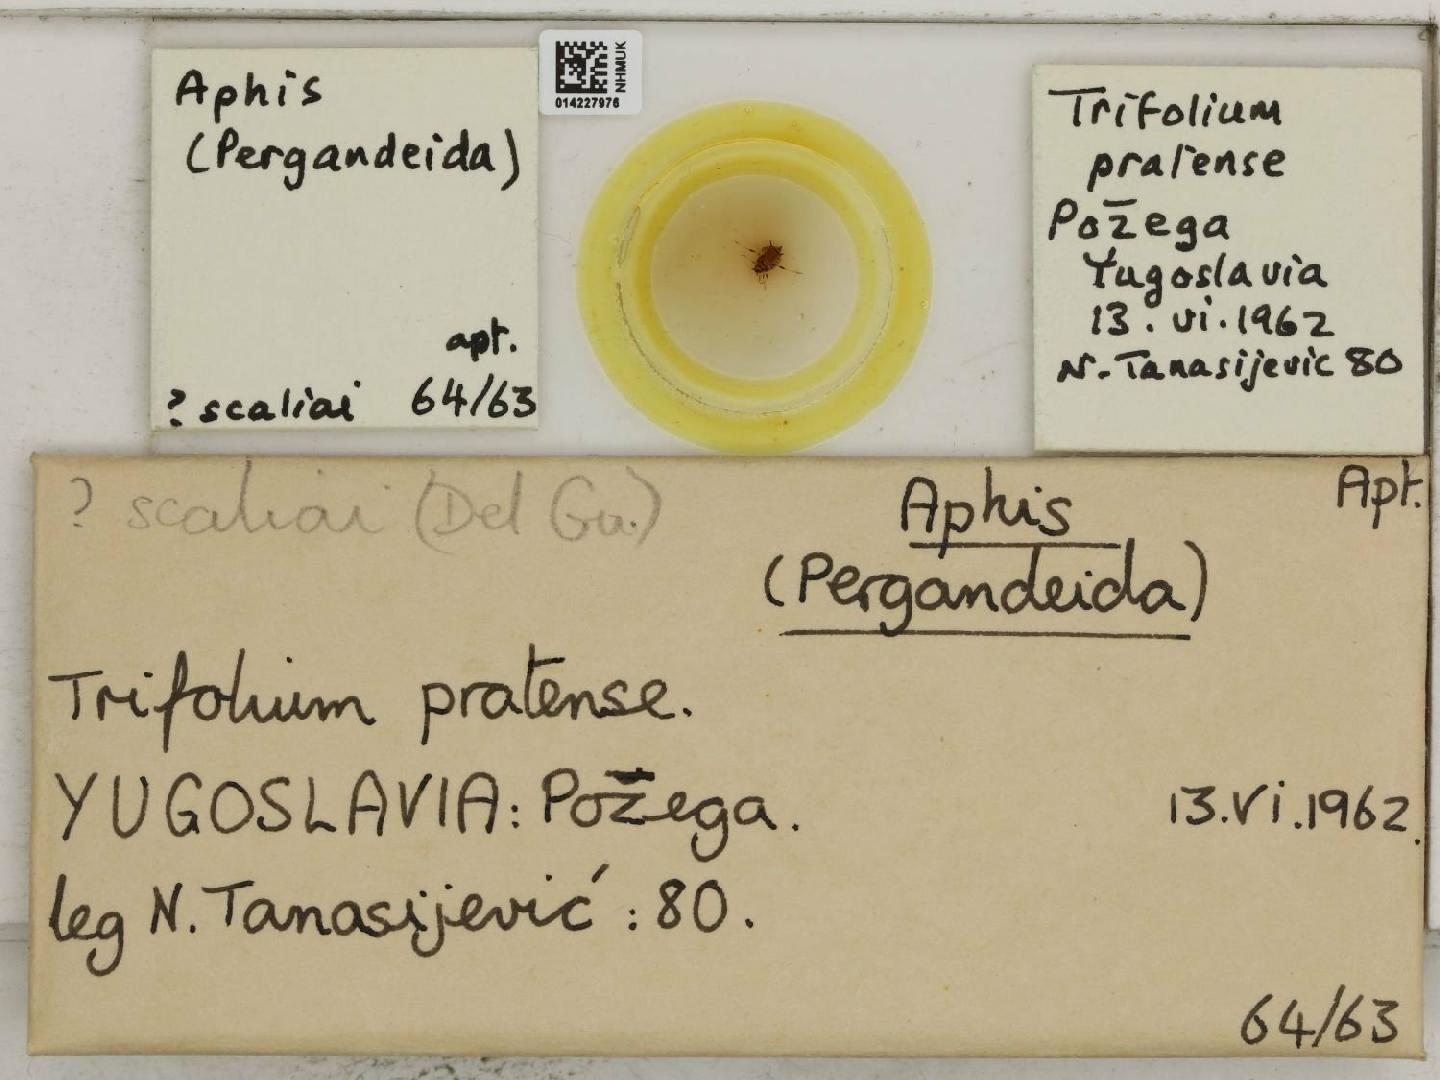 Aphis
(Pergandeida)
apt.
? scaliai 64/63
NHMUK
014227976
Trifolium
pratense
Požega
Yugoslavia
13.vi.1962
N.Tanasijevic 80
? scaliai (Del Gu.)
Aphis
Apt.
(Pergandeida)
Trifolium pratense.
YUGOSLAVIA: Požega.
13.vi.1962.
leg N.Tanasijević: 80.
64/63